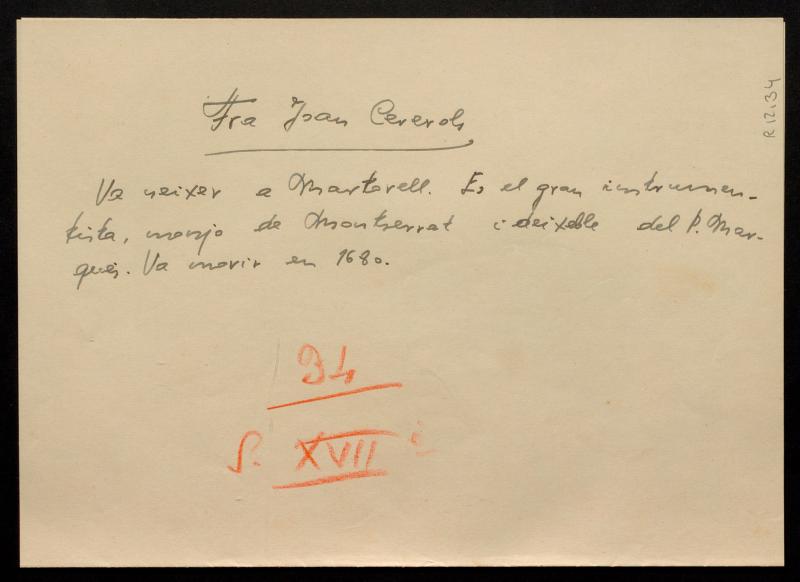 R.12.134
Fra Joan Cererols
Va neixer a Martorell. Es el gran instrumen-
tista, monjo de Montserrat i deixeble del P. Mar-
qués. Va morir en 1680.
34
S. XVII i